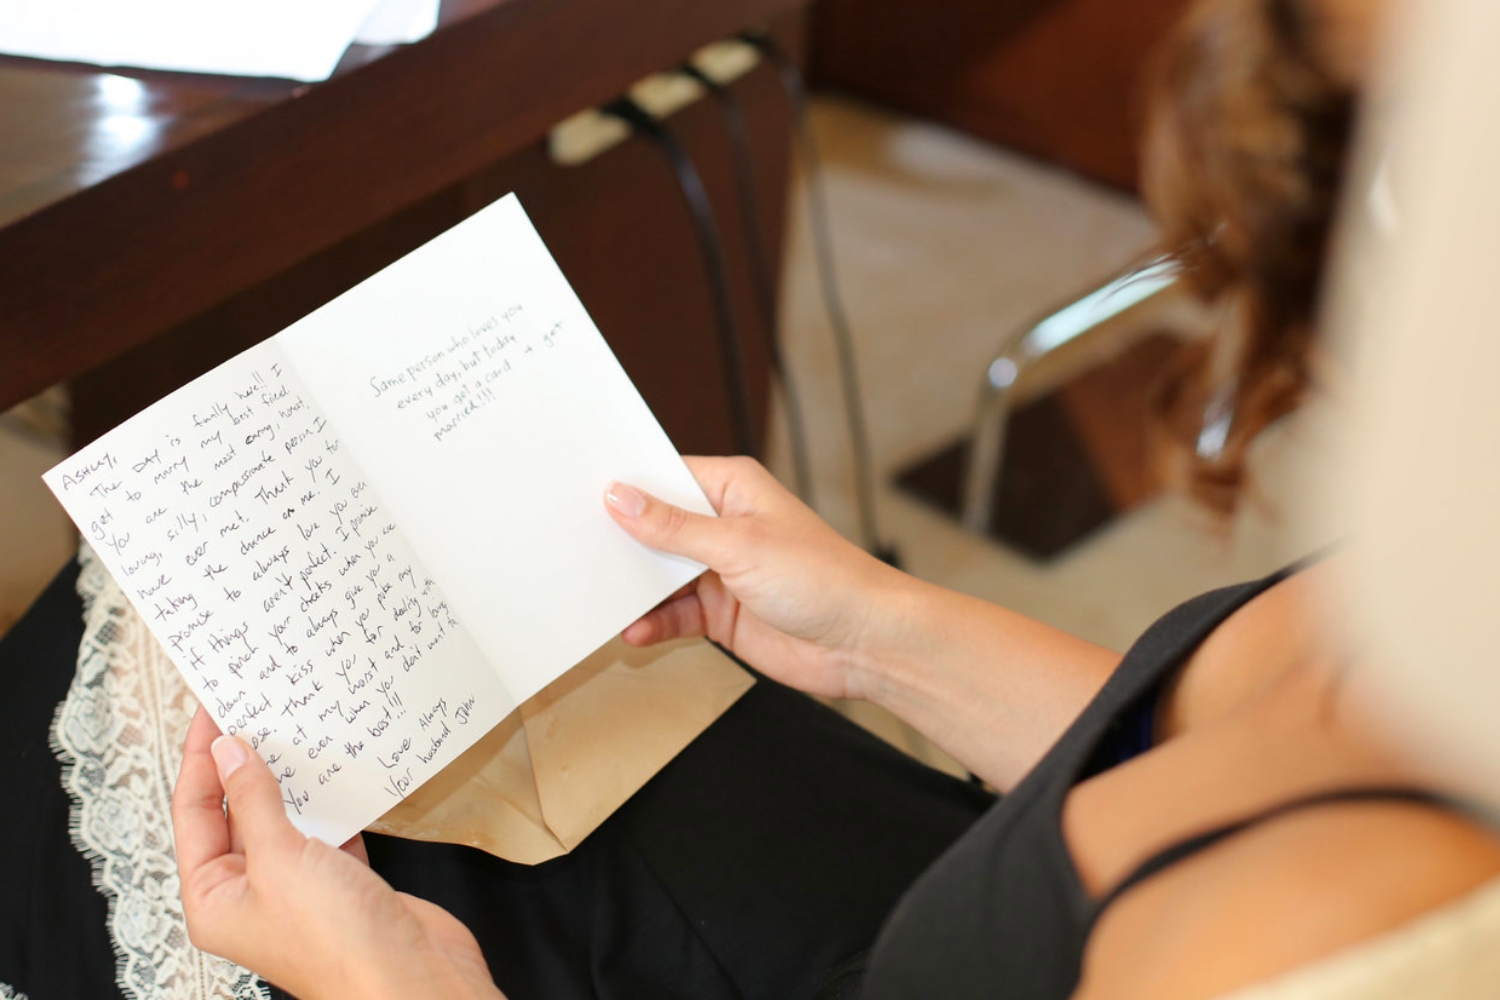 ASHLEY,
The DAY is finally here!! I
get to marry my best friend.
You are the most caring, honest,
loving, silly, compassionate person I
have ever met. Thank you for
taking the chance on me. I
promise to always love you even
if things aren't perfect. I promise
to pinch your cheeks when you are
down and to always give you a
perfect kiss when you poke my
ose. Thank you for dealing with
me at my worst and for loving
me even when you don't want to
You are the best!!!
Love Always
Your husband John
Same person who loves you
every day, but today
you get a card + get
married!!!